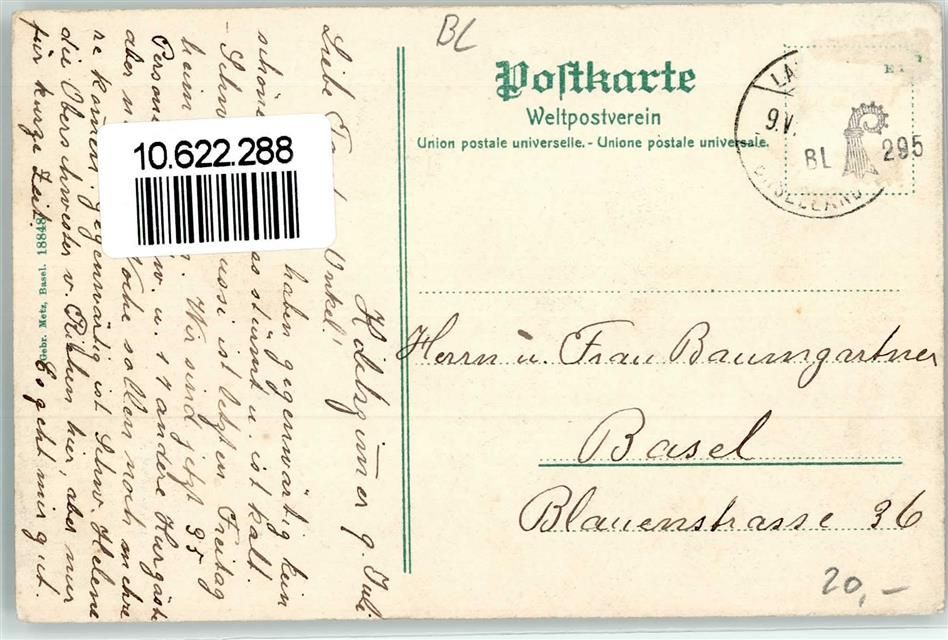 BL
Postkarte
Weltpostverein
Union postale universelle. - Unione postale universale.
9.V.
BL 295
BASELLAND
10.622.288
Herrn u. Frau Baumgartner
Basel
Blauenstrasse 36
20,-
Gebr. Metz, Basel. 18848
9. Juli
Liebe Onkel!
haben gegenwärtig kein
schöne stürmt u. ist kalt.
ist letzten Freitag
heim Wir sind jetzt 35
Person u. 1 andere Kurgäste
aber Woche sollen noch mehre
re kom̄en. gegenwärtig ist Schw. Helene
die Oberschwester v. Riehen hier, aber nur
für kurze Zeit. Es geht mir gut.